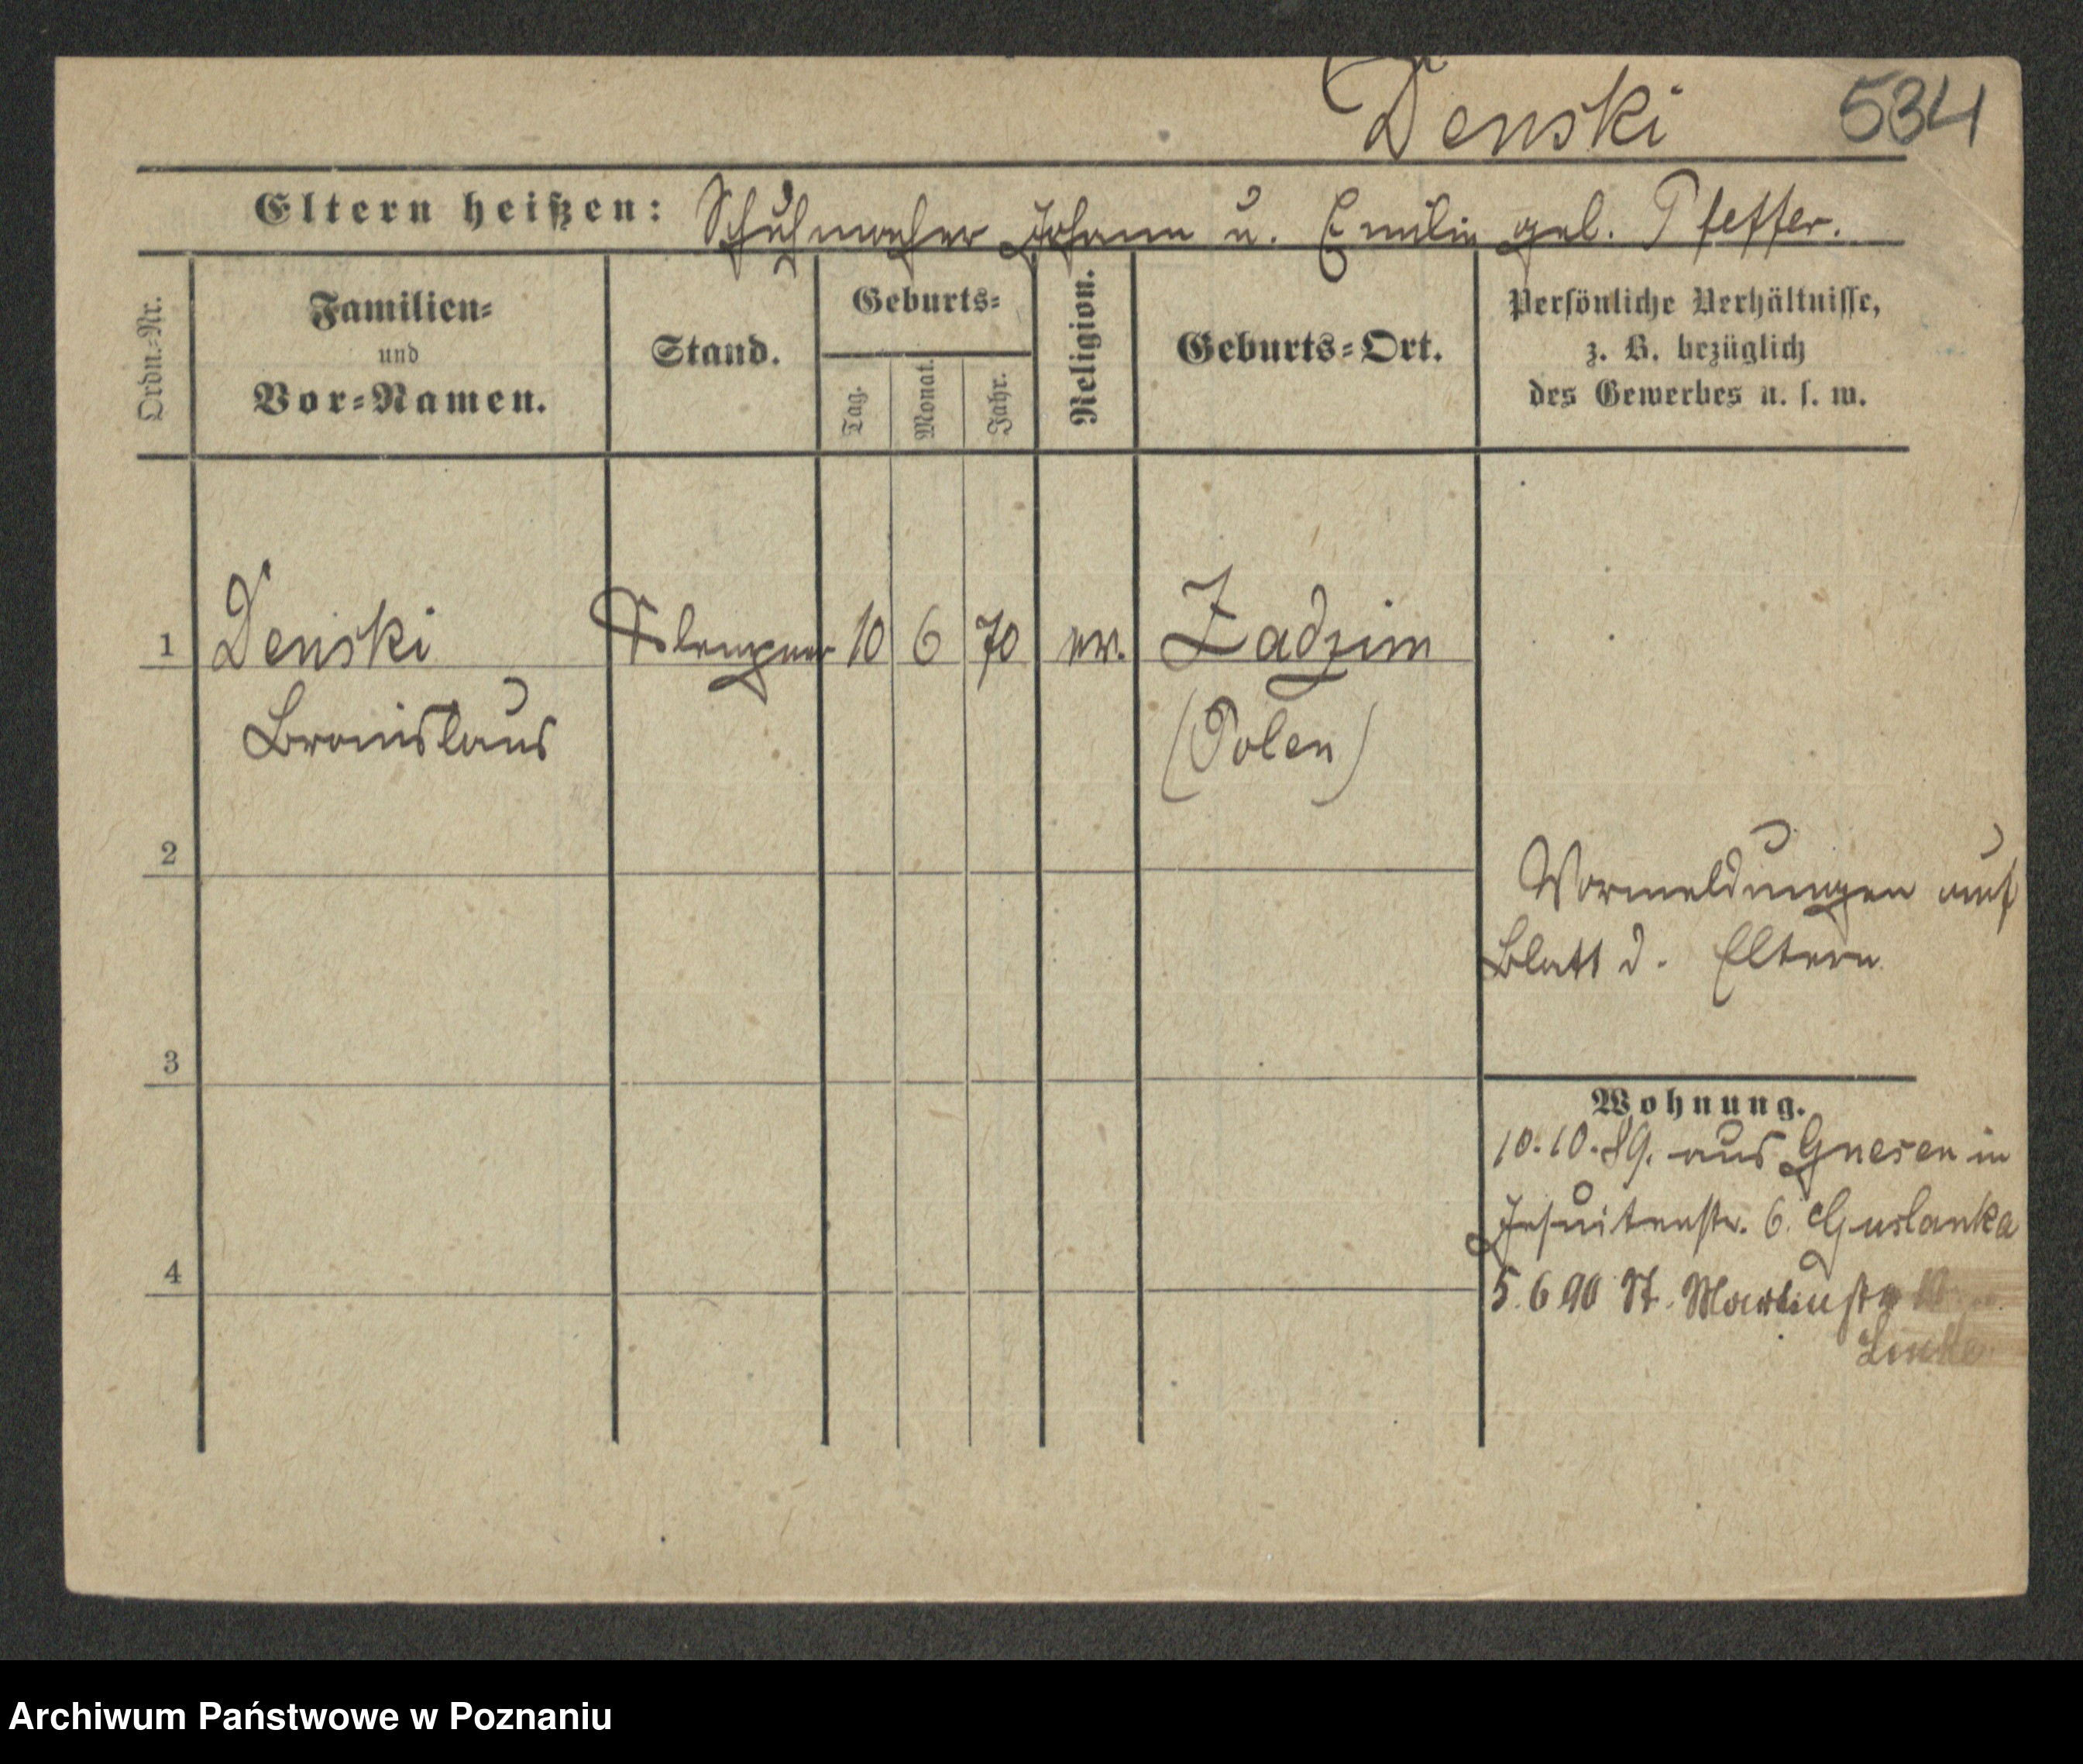 Denski 534
Eltern heißen: Schuhmacher Johann u. Emilie geb. Pfeffer.
Ordn.-Nr.
Familien-
und
Vor-Namen.
Stand.
Geburts-
Tag.
Monat.
Jahr.
Religion.
Geburts-Ort.
Persönliche Verhältnisse,
z. B. bezüglich
des Gewerbes u. s. w.
1 Denski Klempner 10 6 70 ev. Zadzim
Bronislaus (Polen)
2
Vormeldungen auf
Blatt d. Eltern
3
Wohnung.
10.10.89. aus Gnesen in
Jesuitenstr. 6.
4
5.6 90 St. Martinstr
Archiwum Państwowe w Poznaniu